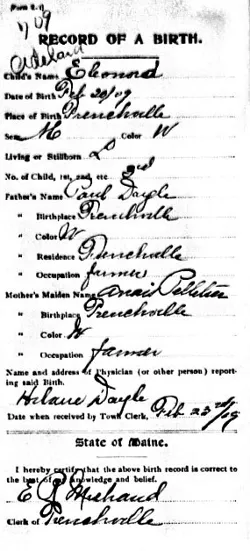 Form R-11
1/09
Adelard
RECORD OF A BIRTH.
Child's Name Eleonord
Date of Birth Feb 20/09
Place of Birth Frenchville
Sex M Color W
Living or Stillborn L
No. of Child, 1st, 2nd, etc. 3rd
Father's Name Daigle
" Birthplace Frenchville
" Color W
" Residence Frenchville
" Occupation farmer
Mother's Maiden Name Anais Pelletier
" Birthplace Frenchville
" Color W
" Occupation farmer
Name and address of Physician (or other person) report-
ing said Birth.
Hilaire Daigle
Date when received by Town Clerk, Feb 23rd/09
State of Maine.
I hereby certify that the above birth record is correct to
the best of my knowledge and belief.
E Michaud
Clerk of Frenchville